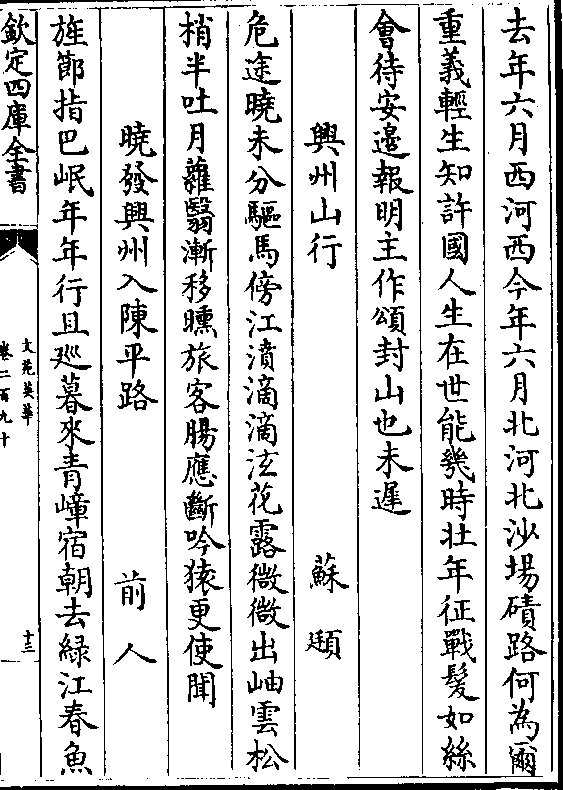 去年六月西河西今年六月北河北沙場磧路何為爾
重義輕生知許國人生在世能幾時壯年征戰髪如絲
會待安邉報明主作頌封山也未遲
興州山行 蘇頲
危途曉未分驅馬傍江濆滴滴泫花露微微出岫雲松
梢半吐月蘿翳漸移曛旅客腸應斷吟猿更使聞
曉發興州入陳平路 前人
旌節指巴岷年年行且廵暮來青嶂宿朝去緑江春魚
欽定四庫全書
文苑英華
卷二百九十
十三